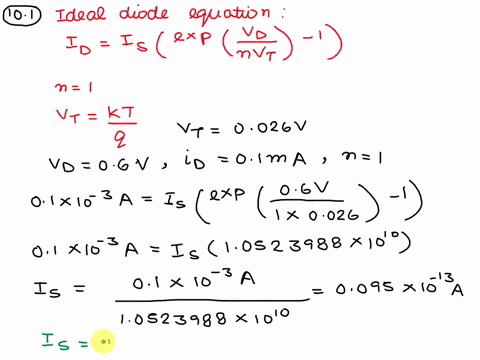 10.1 Ideal diode equation :
I_D = I_S ( exp ( V_D / nV_T ) - 1 )
n = 1
V_T = kT / q
V_T = 0.026V
V_D = 0.6V , i_D = 0.1mA , n = 1
0.1 x 10^-3 A = I_S ( exp ( 0.6V / 1 x 0.026 ) - 1 )
0.1 x 10^-3 A = I_S ( 1.0523988 x 10^10 )
I_S = 0.1 x 10^-3 A / 1.0523988 x 10^10 = 0.095 x 10^-13 A
I_S =